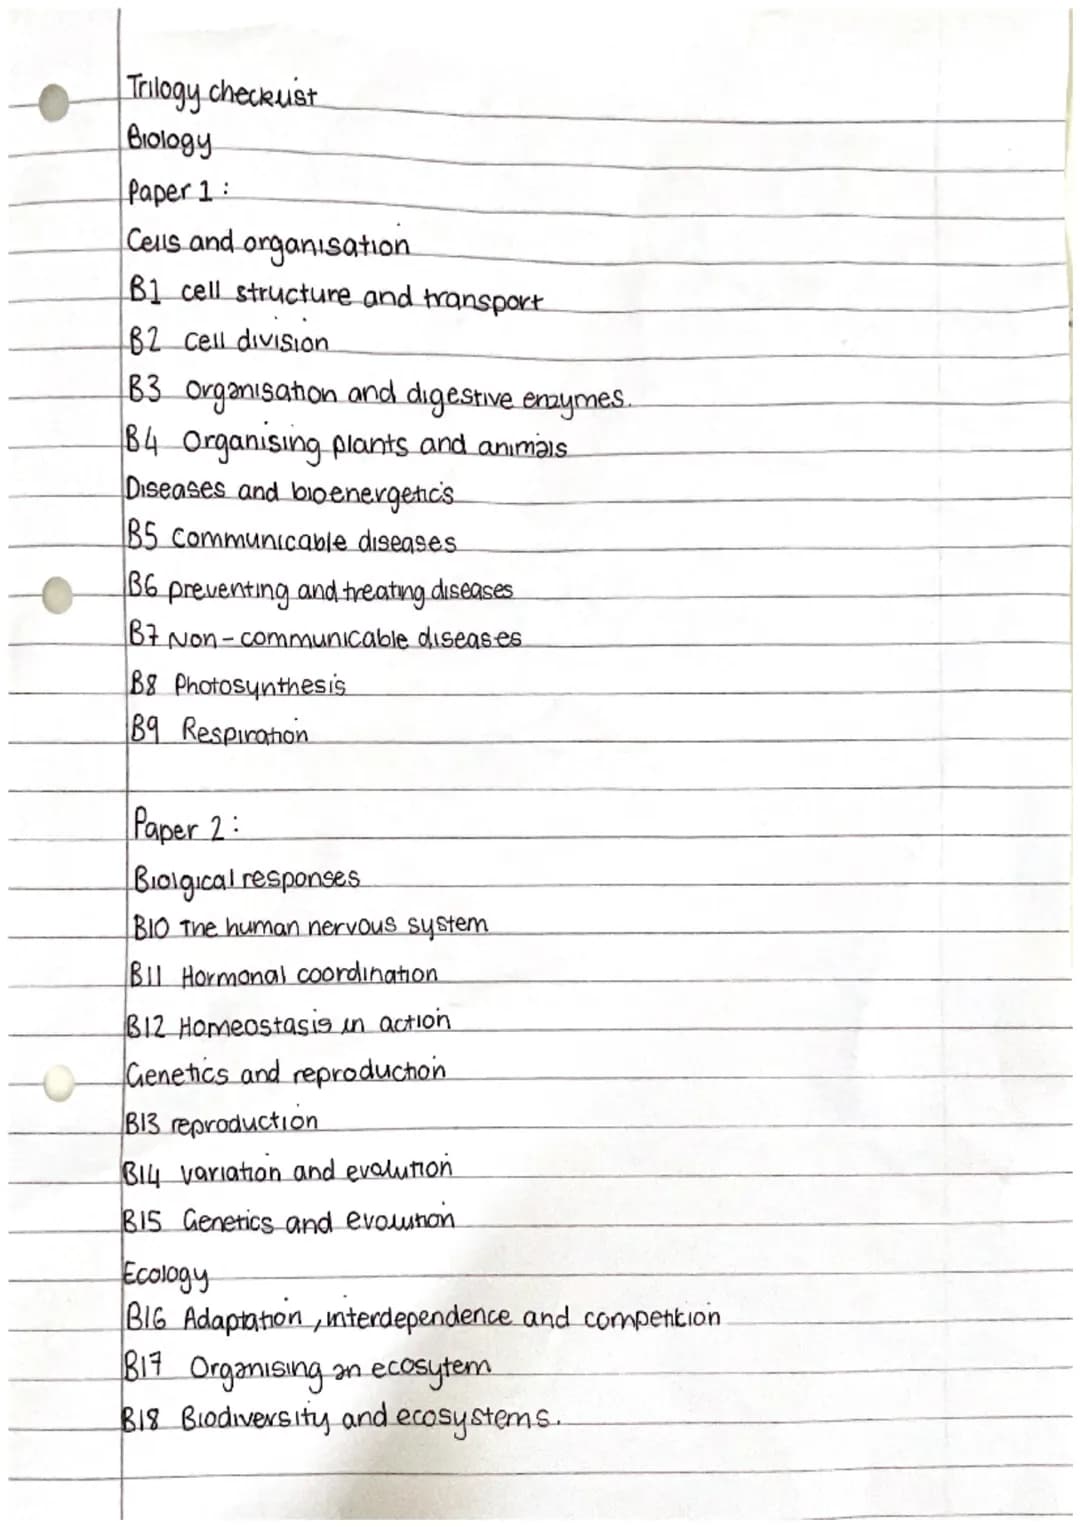 Trilogy checklist
Biology
Paper 1 :
Cells and organisation
B1 cell structure and transport
B2 cell division
B3 Organisation and digestive enzymes.
B4 Organising plants and animals
Diseases and bioenergetics
B5 Communicable diseases
B6 preventing and treating diseases
B7 Non-communicable diseases
B8 Photosynthesis
B9 Respiration
Paper 2 :
Biolgical responses
B10 The human nervous system
B11 Hormonal coordination
B12 Homeostasis in action
Genetics and reproduction
B13 reproduction
B14 variation and evolution
B15 Genetics and evolution
Ecology
B16 Adaptation , interdependence and competition
B17 Organising an ecosytem
B18 Biodiversity and ecosystems.